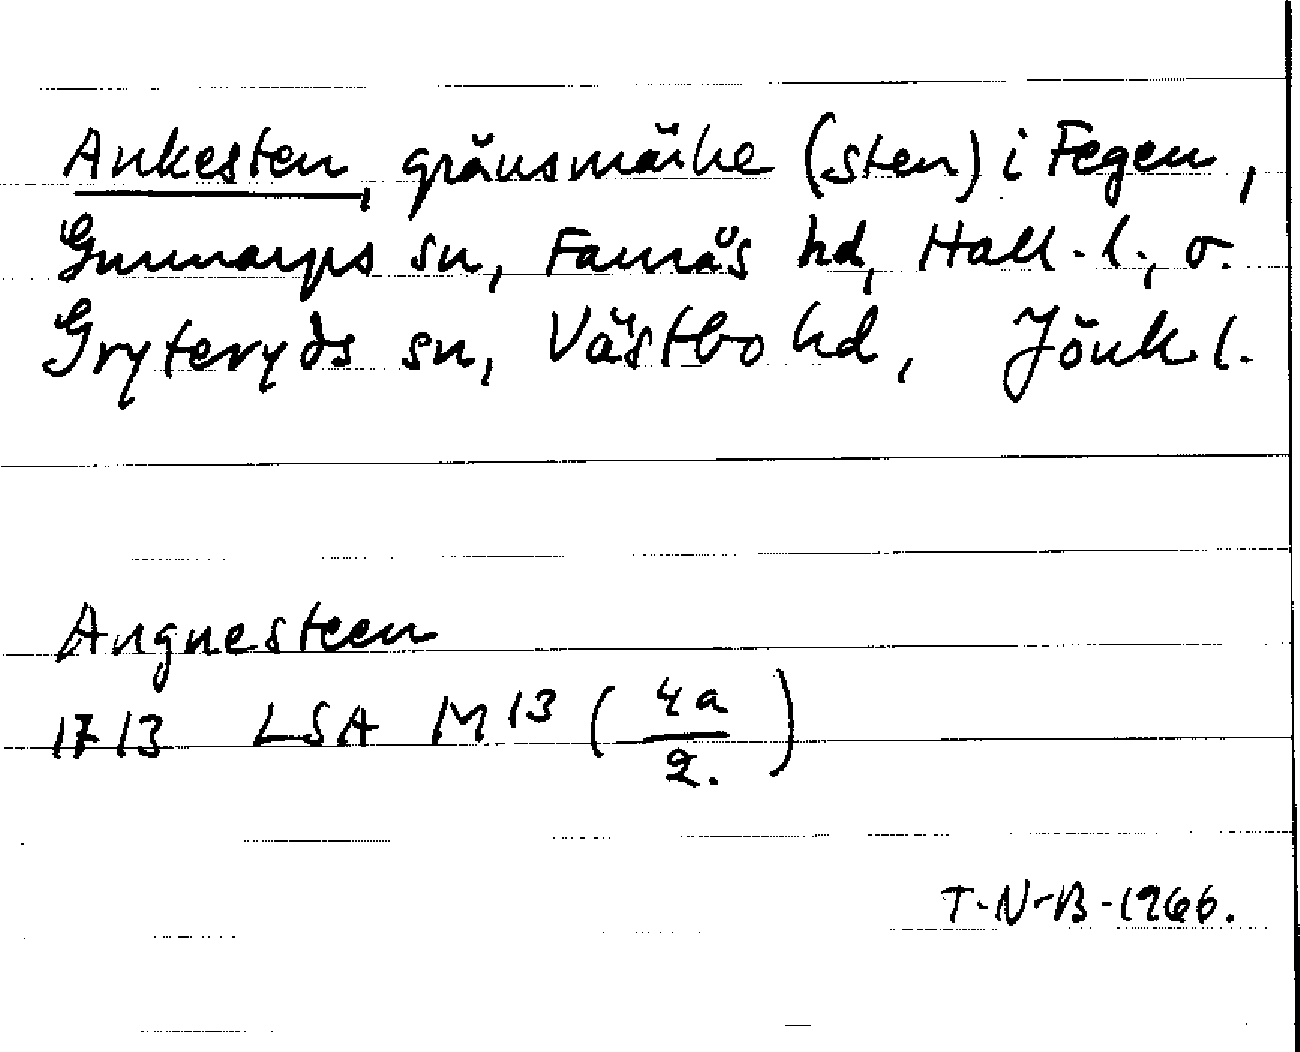 Ankesten, gränsmärke (sten) i Fegen,
Gunnarps sn, Faurås hd, Hall. l., o.
Gryteryds sn, Västbo hd, Jönk. l.
Angnesteen
1713 LSA M 13 (4a/2.)
T-N-B-1966.